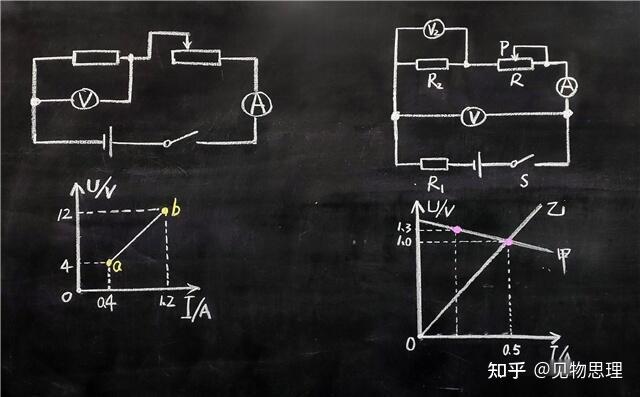 V
A
U/V
12
b
4
a
0
0.4
1.2
I/A
V₂
P
R₂
R
A
V
R₁
S
U/V
乙
1.3
1.0
甲
0
0.5
I/A
知乎 @见物思理